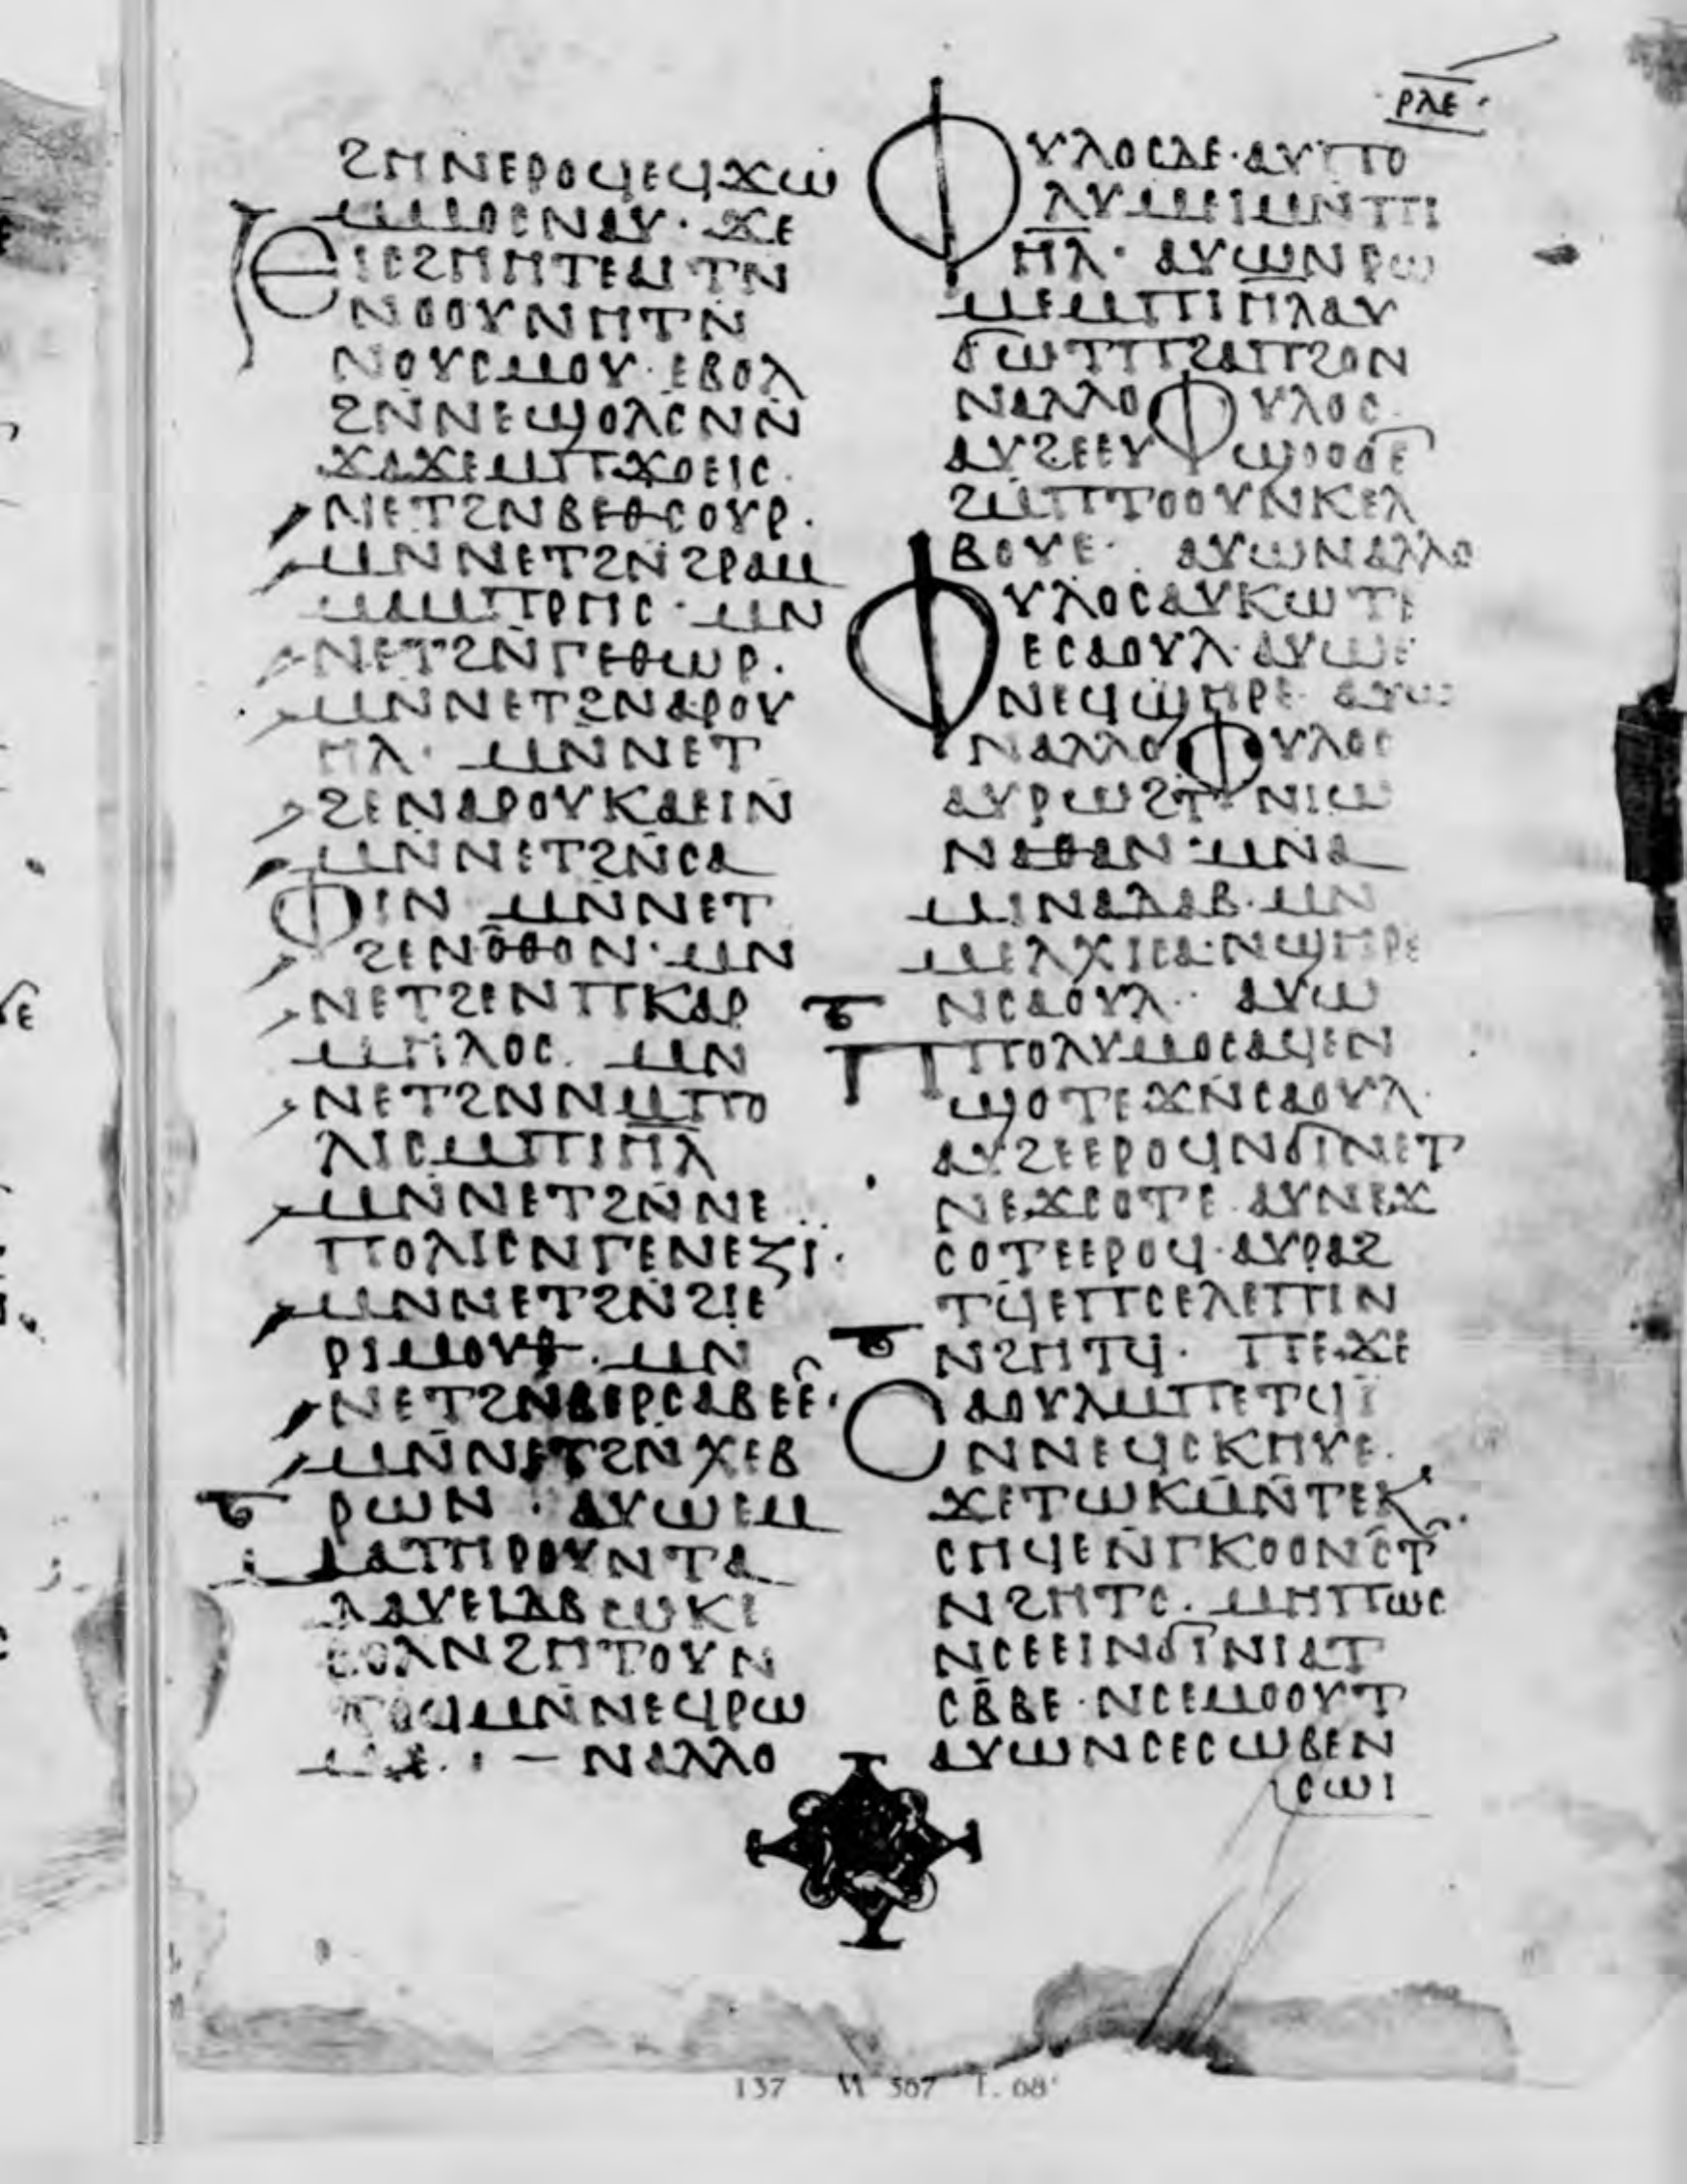 ⲣⲗⲉ
ϩⲏⲛⲉⲣⲟϥⲉϥϫⲱ
ⲙⲙⲟⲥⲛⲁⲩ· ϫⲉ
ⲉⲓⲥϩⲏⲏⲧⲉⲁⲓⲧⲛ
ⲛⲟⲟⲩⲛⲏⲧⲛ
ⲛⲟⲩⲥⲙⲟⲩ· ⲉⲃⲟⲗ
ϩⲛⲛⲉϣⲟⲗⲥⲛⲛ
ϫⲁϫⲉⲙⲡϫⲟⲉⲓⲥ
ⲛⲉⲧϩⲛⲃⲉⲑⲥⲟⲩⲣ·
ⲙⲛⲛⲉⲧϩⲛϩⲣⲁⲙ
ⲙⲁⲙⲡⲣⲏⲥ· ⲙⲛ
ⲛⲉⲧϩⲛⲅⲉⲑⲱⲣ·
ⲙⲛⲛⲉⲧϩⲛⲁⲣⲟⲩ
ⲏⲗ· ⲙⲛⲛⲉⲧ
ϩⲉⲛⲁⲣⲟⲩⲕⲁⲉⲓⲛ
ⲙⲛⲛⲉⲧϩⲛⲥⲁ
ⲫⲓⲛ ⲙⲛⲛⲉⲧ
ϩⲉⲛⲟⲑⲟⲛ· ⲙⲛ
ⲛⲉⲧϩⲉⲛⲡⲕⲁⲣ
ⲙⲏⲗⲟⲥ· ⲙⲛ
ⲛⲉⲧϩⲛⲛⲙⲡⲟ
ⲗⲓⲥⲙⲡⲓⲏⲗ
ⲙⲛⲛⲉⲧϩⲛⲛⲉ
ⲡⲟⲗⲓⲥⲛⲅⲉⲛⲉⲍⲓ·
ⲙⲛⲛⲉⲧϩⲛϩⲓⲉ
ⲣⲓⲙⲟⲩⲑ· ⲙⲛ
ⲛⲉⲧϩⲛⲃⲉⲣⲥⲁⲃⲉⲉ·
ⲙⲛⲛⲉⲧϩⲛⲭⲉⲃ
ⲣⲱⲛ· ⲁⲩⲱⲉⲙ
ⲙⲁⲧⲏⲣⲟⲩⲛⲧⲁ
ⲇⲁⲩⲉⲓⲇⲃⲱⲕⲉ
ⲃⲟⲗⲛϩⲏⲧⲟⲩⲛ
ⲧⲟϥⲙⲛⲛⲉϥⲣⲱ
ⲙⲉ· — ⲛⲁⲗⲗⲟ
ⲫⲩⲗⲟⲥⲇⲉ· ⲁⲩⲡⲟ
ⲗⲩⲙⲉⲓⲙⲛⲡⲓ
ⲏⲗ· ⲁⲩⲱⲛⲣⲱ
ⲙⲉⲙⲡⲓⲏⲗⲁⲩ
ϭⲱⲧⲡϩⲁⲡϩⲟⲛ
ⲛⲁⲗⲗⲟⲫⲩⲗⲟⲥ
ⲁⲩϩⲉⲉⲩϣⲟⲟϭⲉ
ϩⲙⲡⲧⲟⲟⲩⲛⲕⲉⲗ
ⲃⲟⲩⲉ· ⲁⲩⲱⲛⲁⲗⲗⲟ
ⲫⲩⲗⲟⲥⲁⲩⲕⲱⲧⲉ
ⲉⲥⲁⲟⲩⲗ· ⲁⲩⲱⲉ
ⲛⲉϥϣⲏⲣⲉ· ⲁⲩⲱ
ⲛⲁⲗⲗⲟⲫⲩⲗⲟⲥ
ⲁⲩⲣⲱϩⲧ· ⲛⲓⲱ
ⲛⲁⲑⲁⲛ· ⲙⲛⲁ
ⲙⲓⲛⲁⲇⲁⲃ· ⲙⲛ
ⲙⲉⲗⲭⲓⲥⲁ· ⲛϣⲏⲣⲉ
ⲛⲥⲁⲟⲩⲗ· ⲁⲩⲱ
ⲡⲡⲟⲗⲩⲙⲟⲥⲁϥⲉⲛ
ϣⲟⲧⲉϫⲛⲥⲁⲟⲩⲗ·
ⲁⲩϩⲉⲉⲣⲟϥⲛϭⲓⲛⲉⲧ
ⲛⲉϫⲥⲟⲧⲉ ⲁⲩⲛⲉϫ
ⲥⲟⲧⲉⲉⲣⲟϥ· ⲁⲩⲣⲁϩ
ⲧϥⲉⲡⲥⲉⲗⲉⲡⲓⲛ
ⲛϩⲏⲧϥ· ⲡⲉϫⲉ
ⲥⲁⲟⲩⲗⲙⲡⲉⲧϥⲓ
ⲛⲛⲉϥⲥⲕⲏⲩⲉ·
ϫⲉⲧⲱⲕⲙⲛⲧⲉⲕ
ⲥⲏϥⲉⲛⲅⲕⲟⲟⲛⲥⲧ
ⲛϩⲏⲧⲥ· ⲙⲏⲡⲱⲥ
ⲛⲥⲉⲉⲓⲛϭⲓⲛⲓⲁⲧ
ⲥⲃⲃⲉ· ⲛⲥⲉⲙⲟⲟⲩⲧ
ⲁⲩⲱⲛⲥⲉⲥⲱⲃⲉⲛ
ⲥⲱⲓ
137 M 567 f. 68ʳ